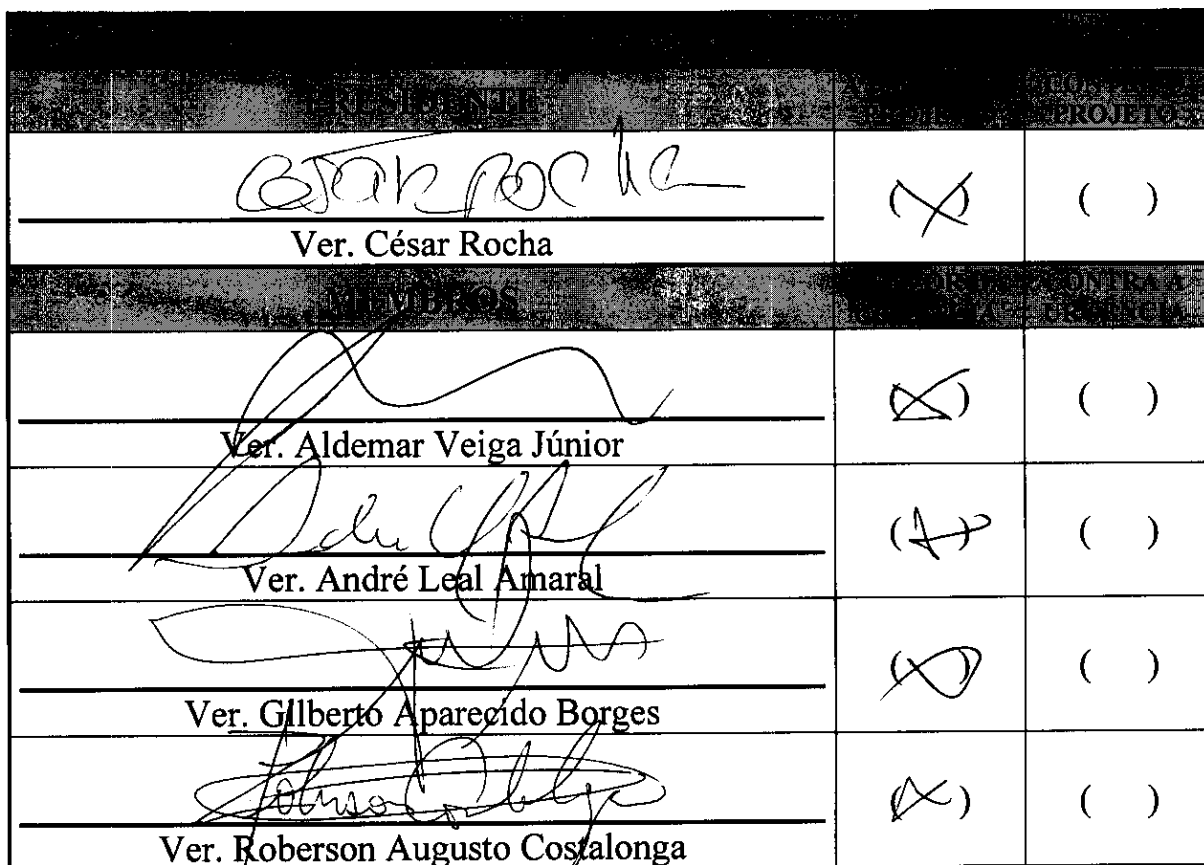 PRESIDENTE
PROJETO
César Rocha
( X ) ( )
Ver. César Rocha
MEMBROS CONTRA A
URGÊNCIA
( X ) ( )
Ver. Aldemar Veiga Júnior
( X ) ( )
Ver. André Leal Amaral
( X ) ( )
Ver. Gilberto Aparecido Borges
( X ) ( )
Ver. Roberson Augusto Costalonga